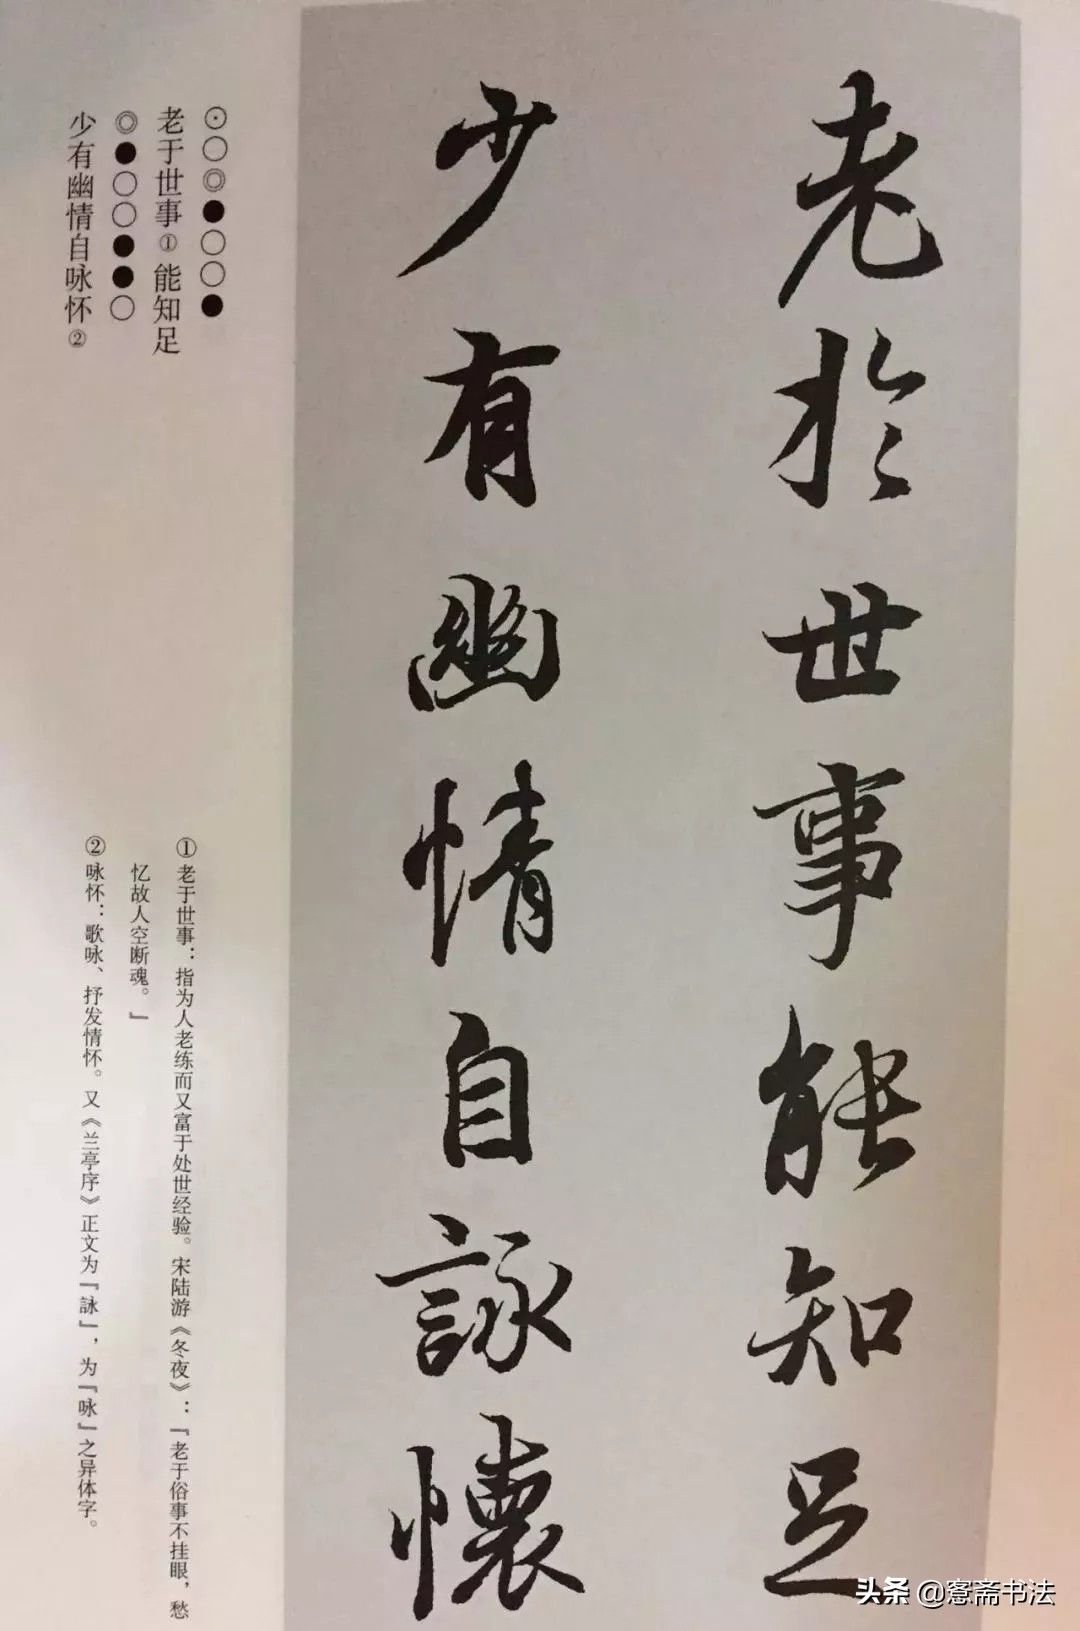 老於世事能知足
少有幽情自詠懷
⊙○◎●○○●
老于世事①能知足
◎●○○●●○
少有幽情自咏怀②
①老于世事：指为人老练而又富于处世经验。宋陆游《冬夜》：『老于俗事不挂眼，愁
忆故人空断魂。』
②咏怀：歌咏、抒发情怀。又《兰亭序》正文为『詠』，为『咏』之异体字。
头条@窓斋书法